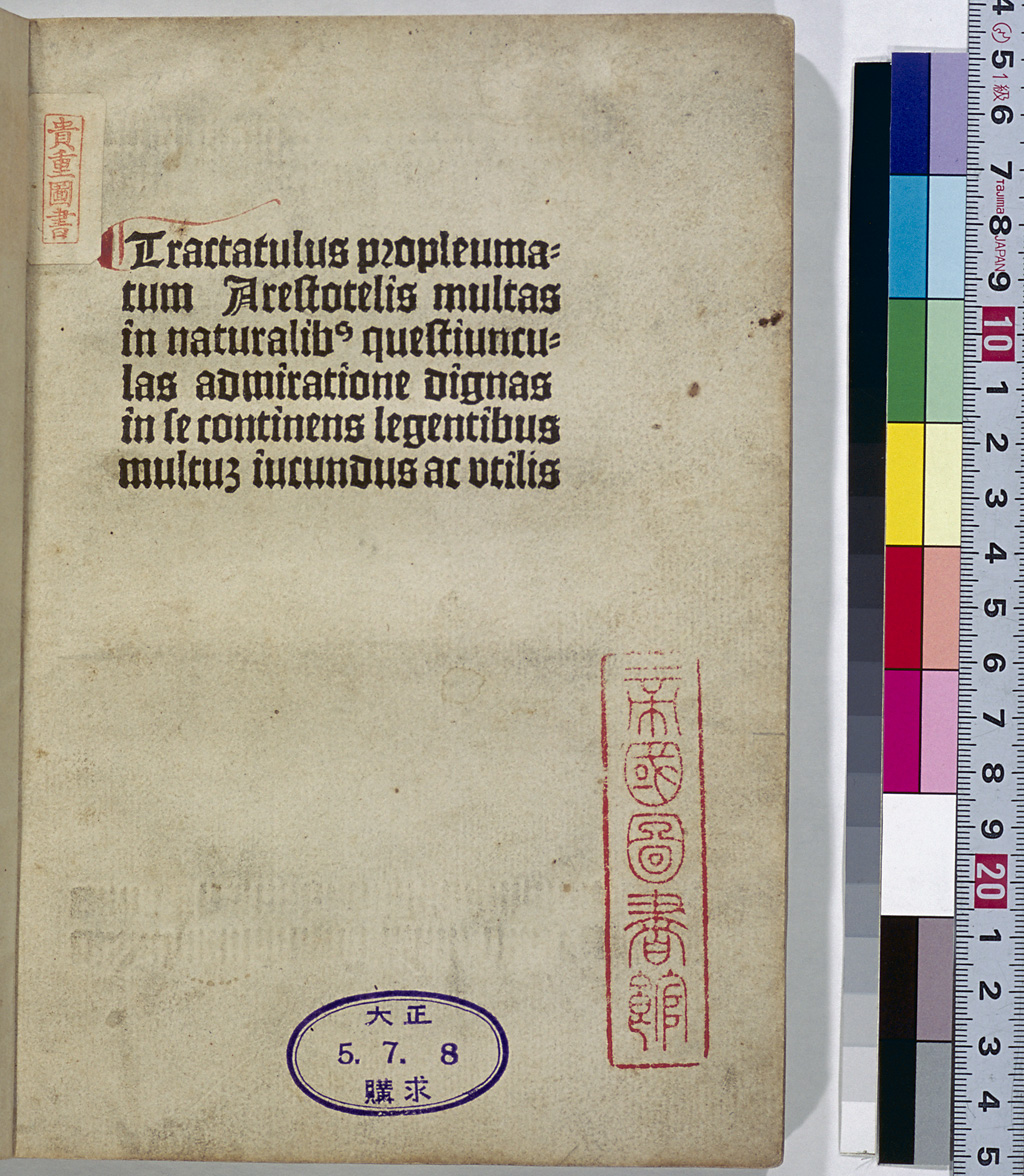 貴重圖書
Tractatulus propleuma=
tum Arestotelis multas
in naturalibꝰ questiuncu=
las admiratione dignas
in se continens legentibus
multuꝫ iucundus ac vtilis
帝國圖書館
大正
5. 7. 8
購求
4
5
1級
6
7
Tajima
8
JAPAN
9
10
1
2
3
4
5
6
7
8
9
20
1
2
3
4
5